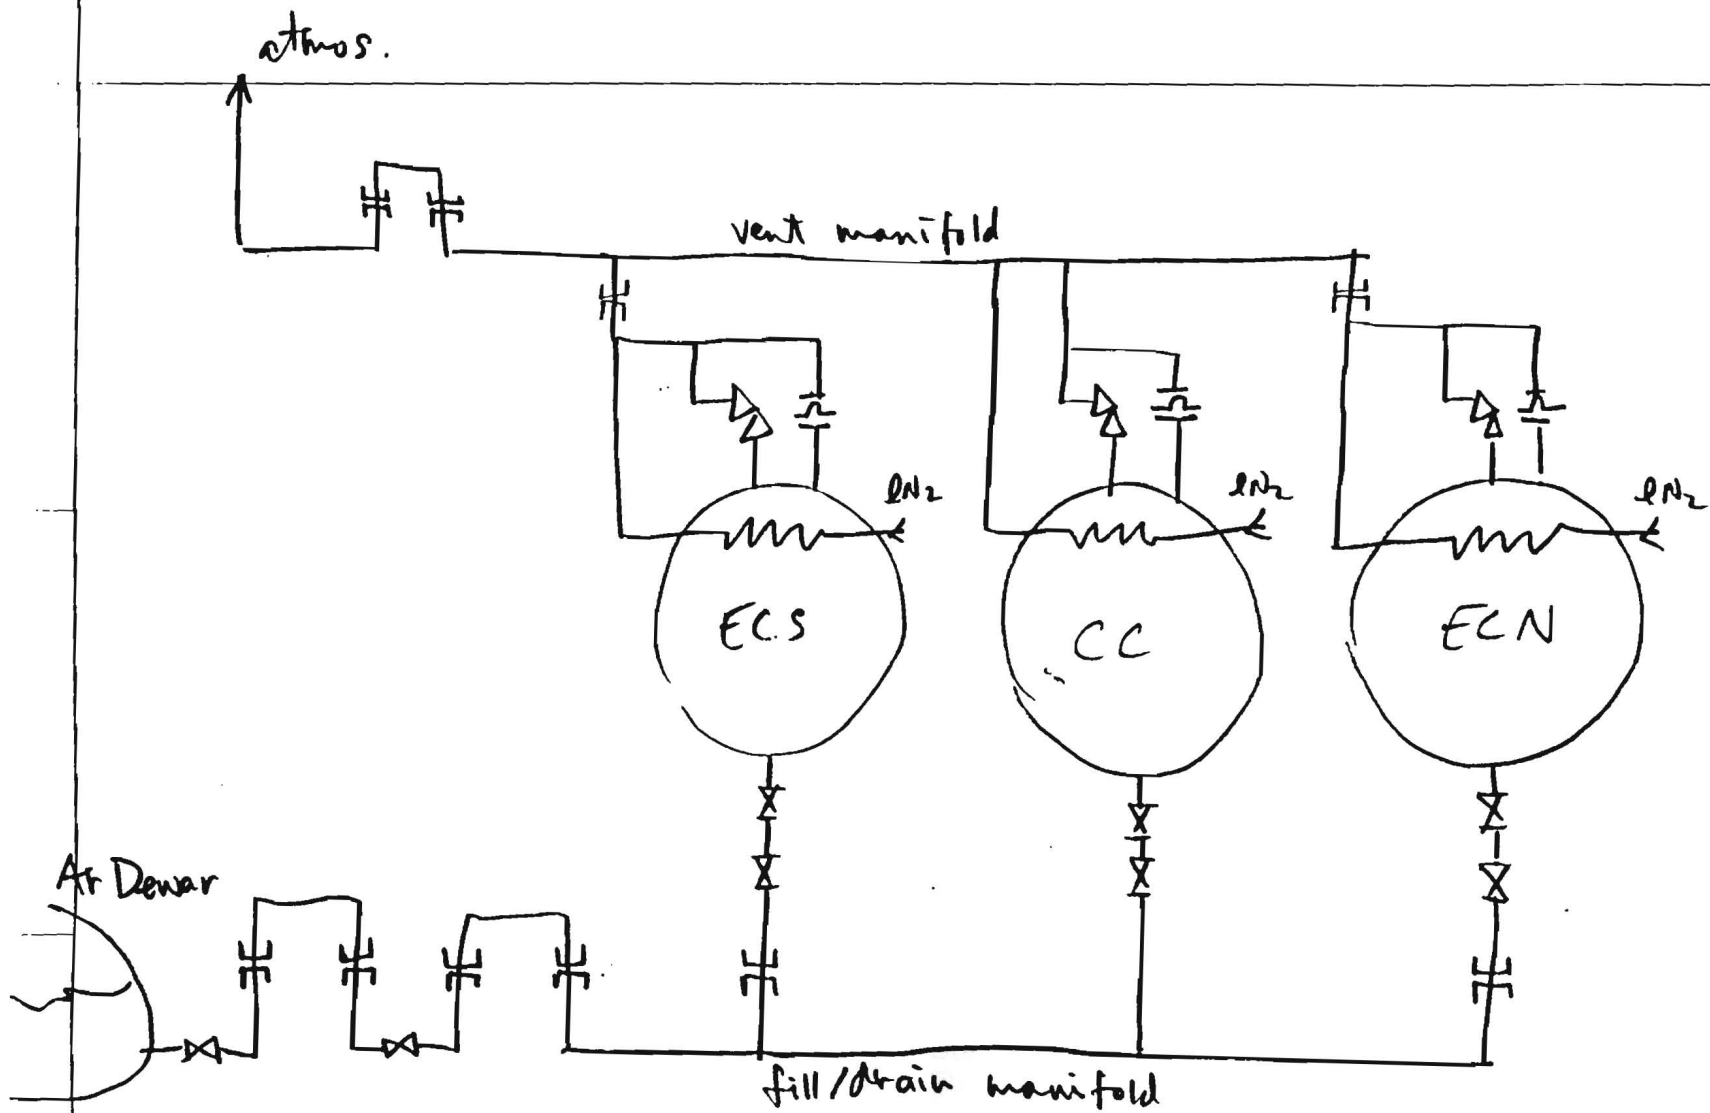 atmos.
vent manifold
lN2
lN2
lN2
ECS
CC
ECN
Ar Dewar
fill/drain manifold